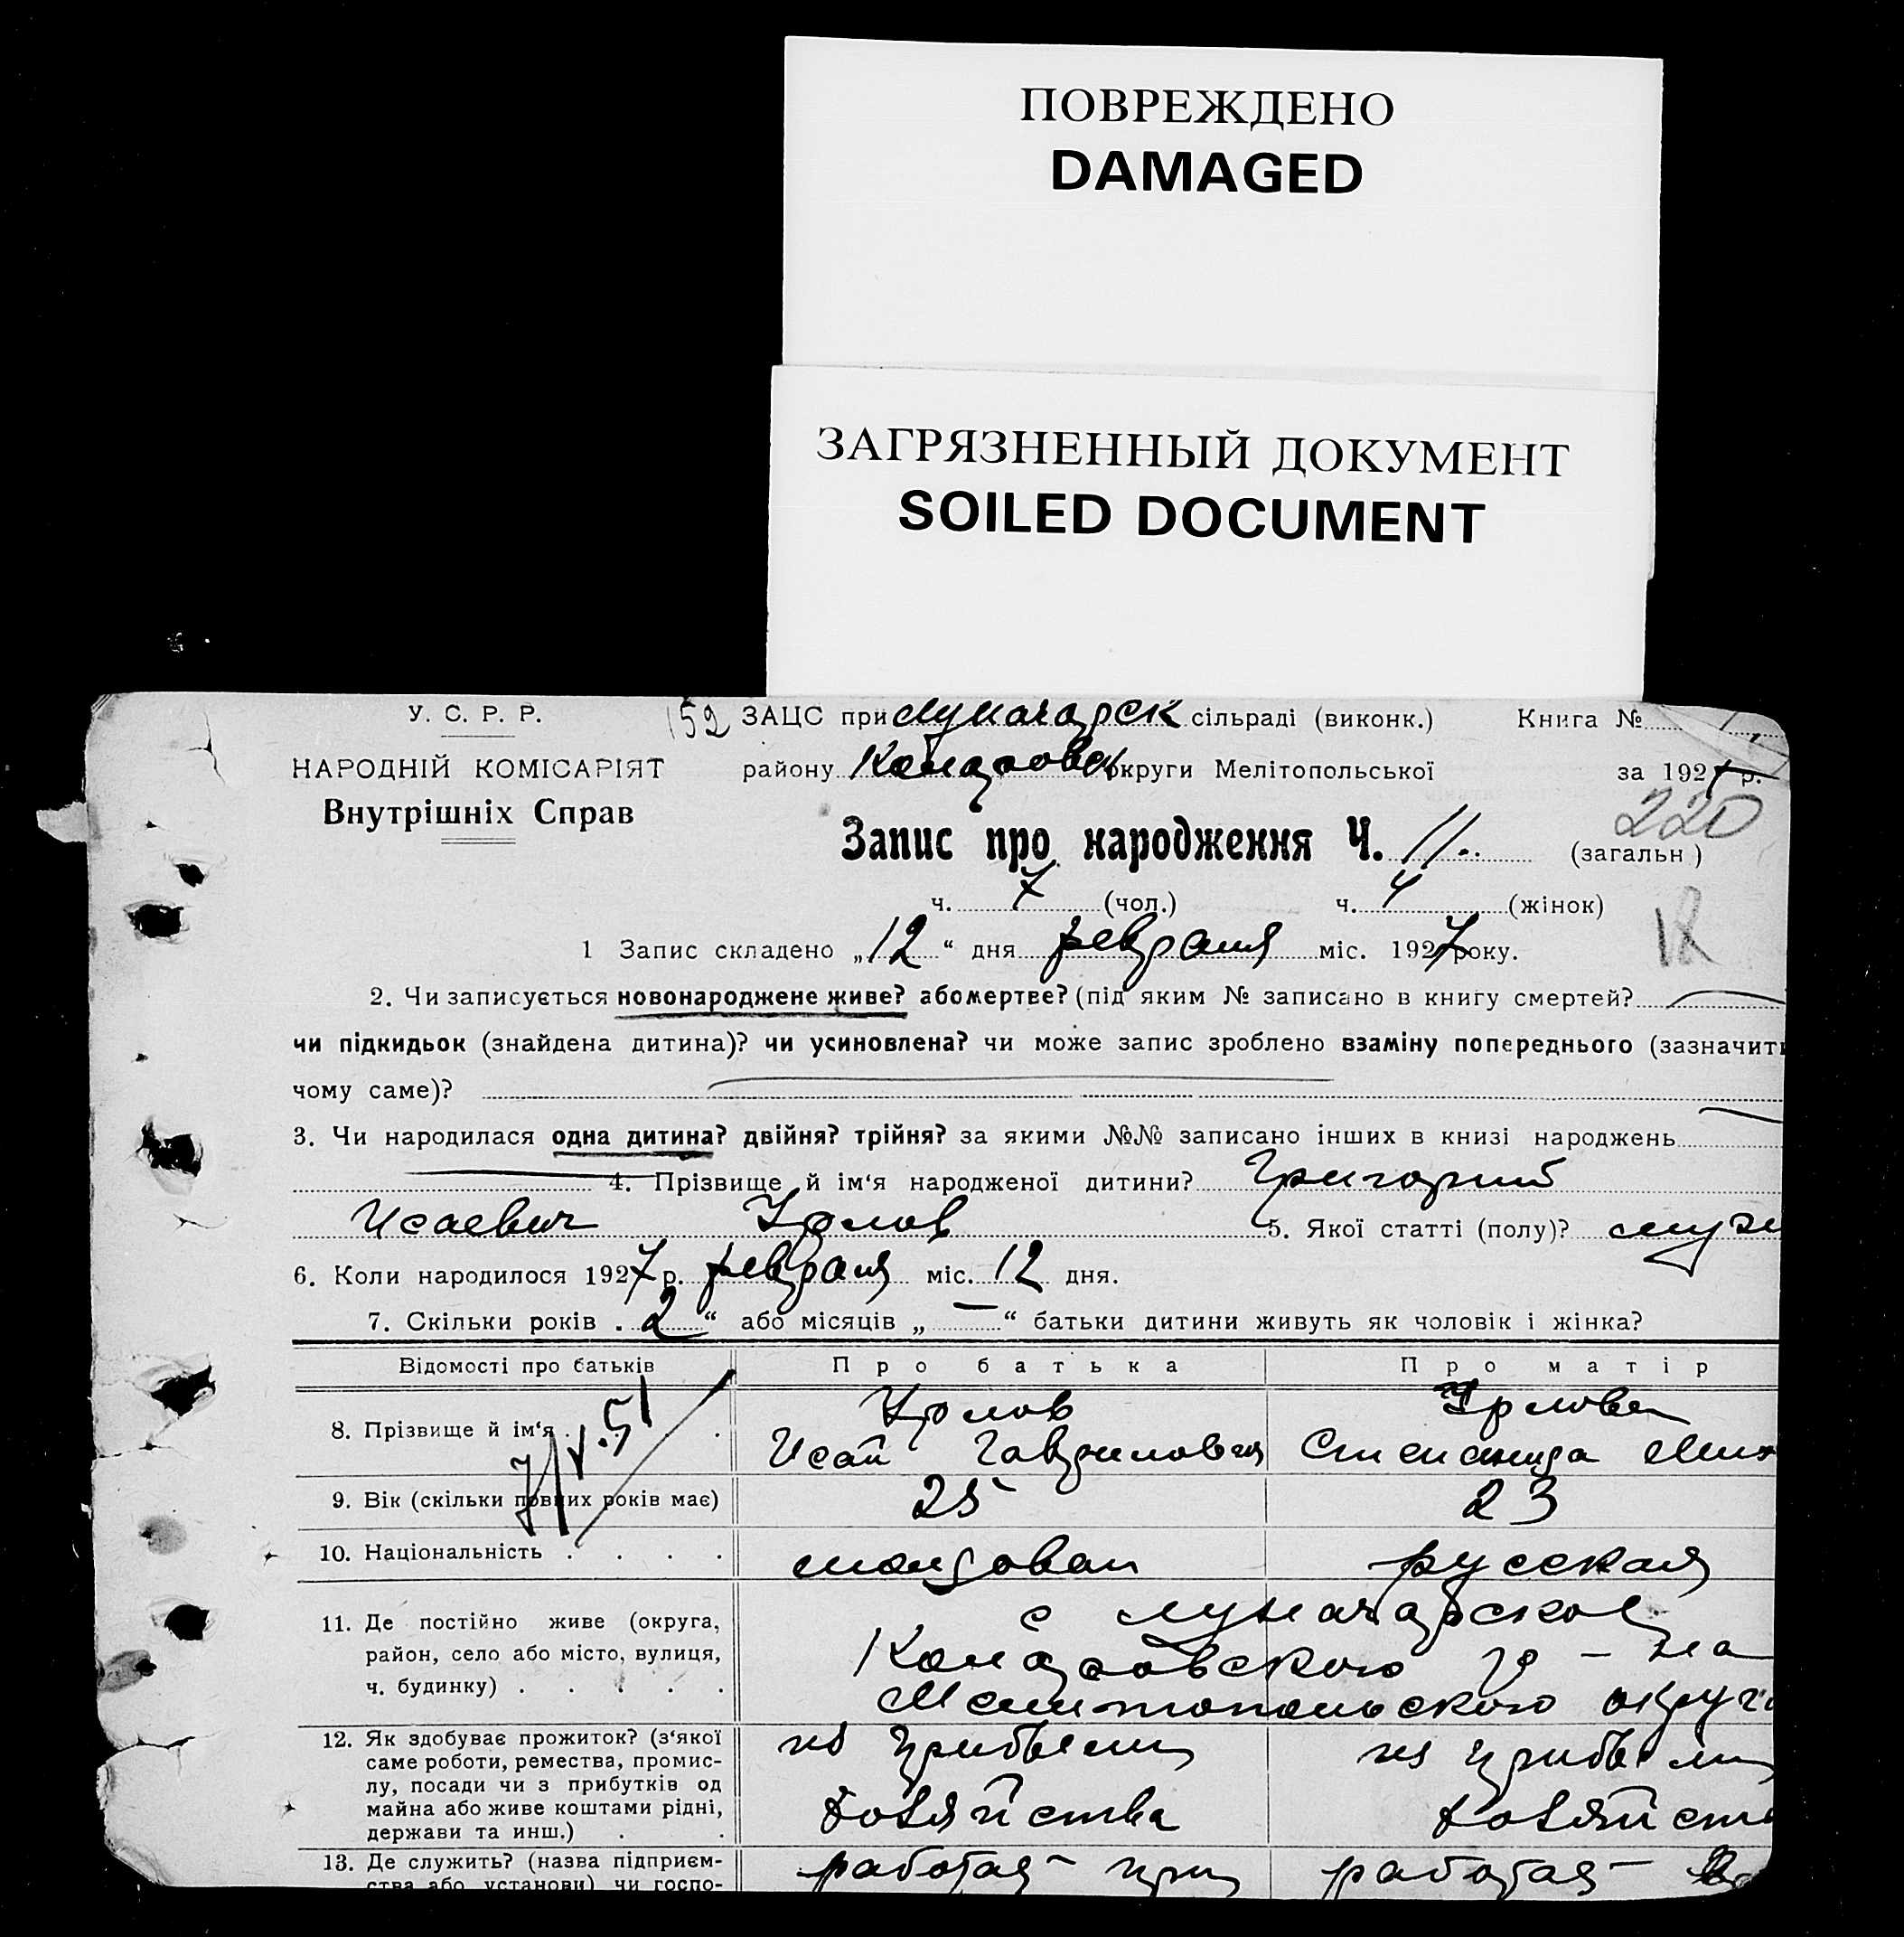 ПОВРЕЖДЕНО
DAMAGED
ЗАГРЯЗНЕННЫЙ ДОКУМЕНТ
SOILED DOCUMENT
У. С. Р. Р.
НАРОДНІЙ КОМІСАРІЯТ
Внутрішніх Справ
152 ЗАЦС при Луначарск сільраді (виконк.) Книга № 1
району округи Мелітопольської за 1927 р.
220
Запис про народження Ч. 11. (загальн)
ч. 7 (чол.) ч. 4 (жінок)
1 Запис складено „12“ дня февраля міс. 1927 року.
2. Чи записується новонароджене живе? абомертве? (під яким № записано в книгу смертей?
чи підкидьок (знайдена дитина)? чи усиновлена? чи може запис зроблено взаміну попереднього (зазначити
чому саме)?
3. Чи народилася одна дитина? двійня? трійня? за якими №№ записано інших в книзі народжень
4. Прізвище й ім‘я народженої дитини? Григорий
Исаевич 5. Якої статті (полу)? муж
6. Коли народилося 1927 р. февраля міс. 12 дня.
7. Скільки років „2“ або місяців „—“ батьки дитини живуть як чоловік і жінка?
Відомості про батьків Про батька Про матір
8. Прізвище й ім‘я
Исай Гаврилович Степанида Мих
9. Вік (скільки повних років має) 25 23
10. Національність молдован русская
11. Де постійно живе (округа,
район, село або місто, вулиця,
ч. будинку)
с Луначарское
р-на
Мелитопольского округа
12. Як здобуває прожиток? (з‘якої
саме роботи, ремества, промис-
лу, посади чи з прибутків од
майна або живе коштами рідні,
держави та инш.)
из прибыли из прибыли
хозяйства хозяйства
13. Де служить? (назва підприєм-
ства або установи) чи госпо-
работая при работая